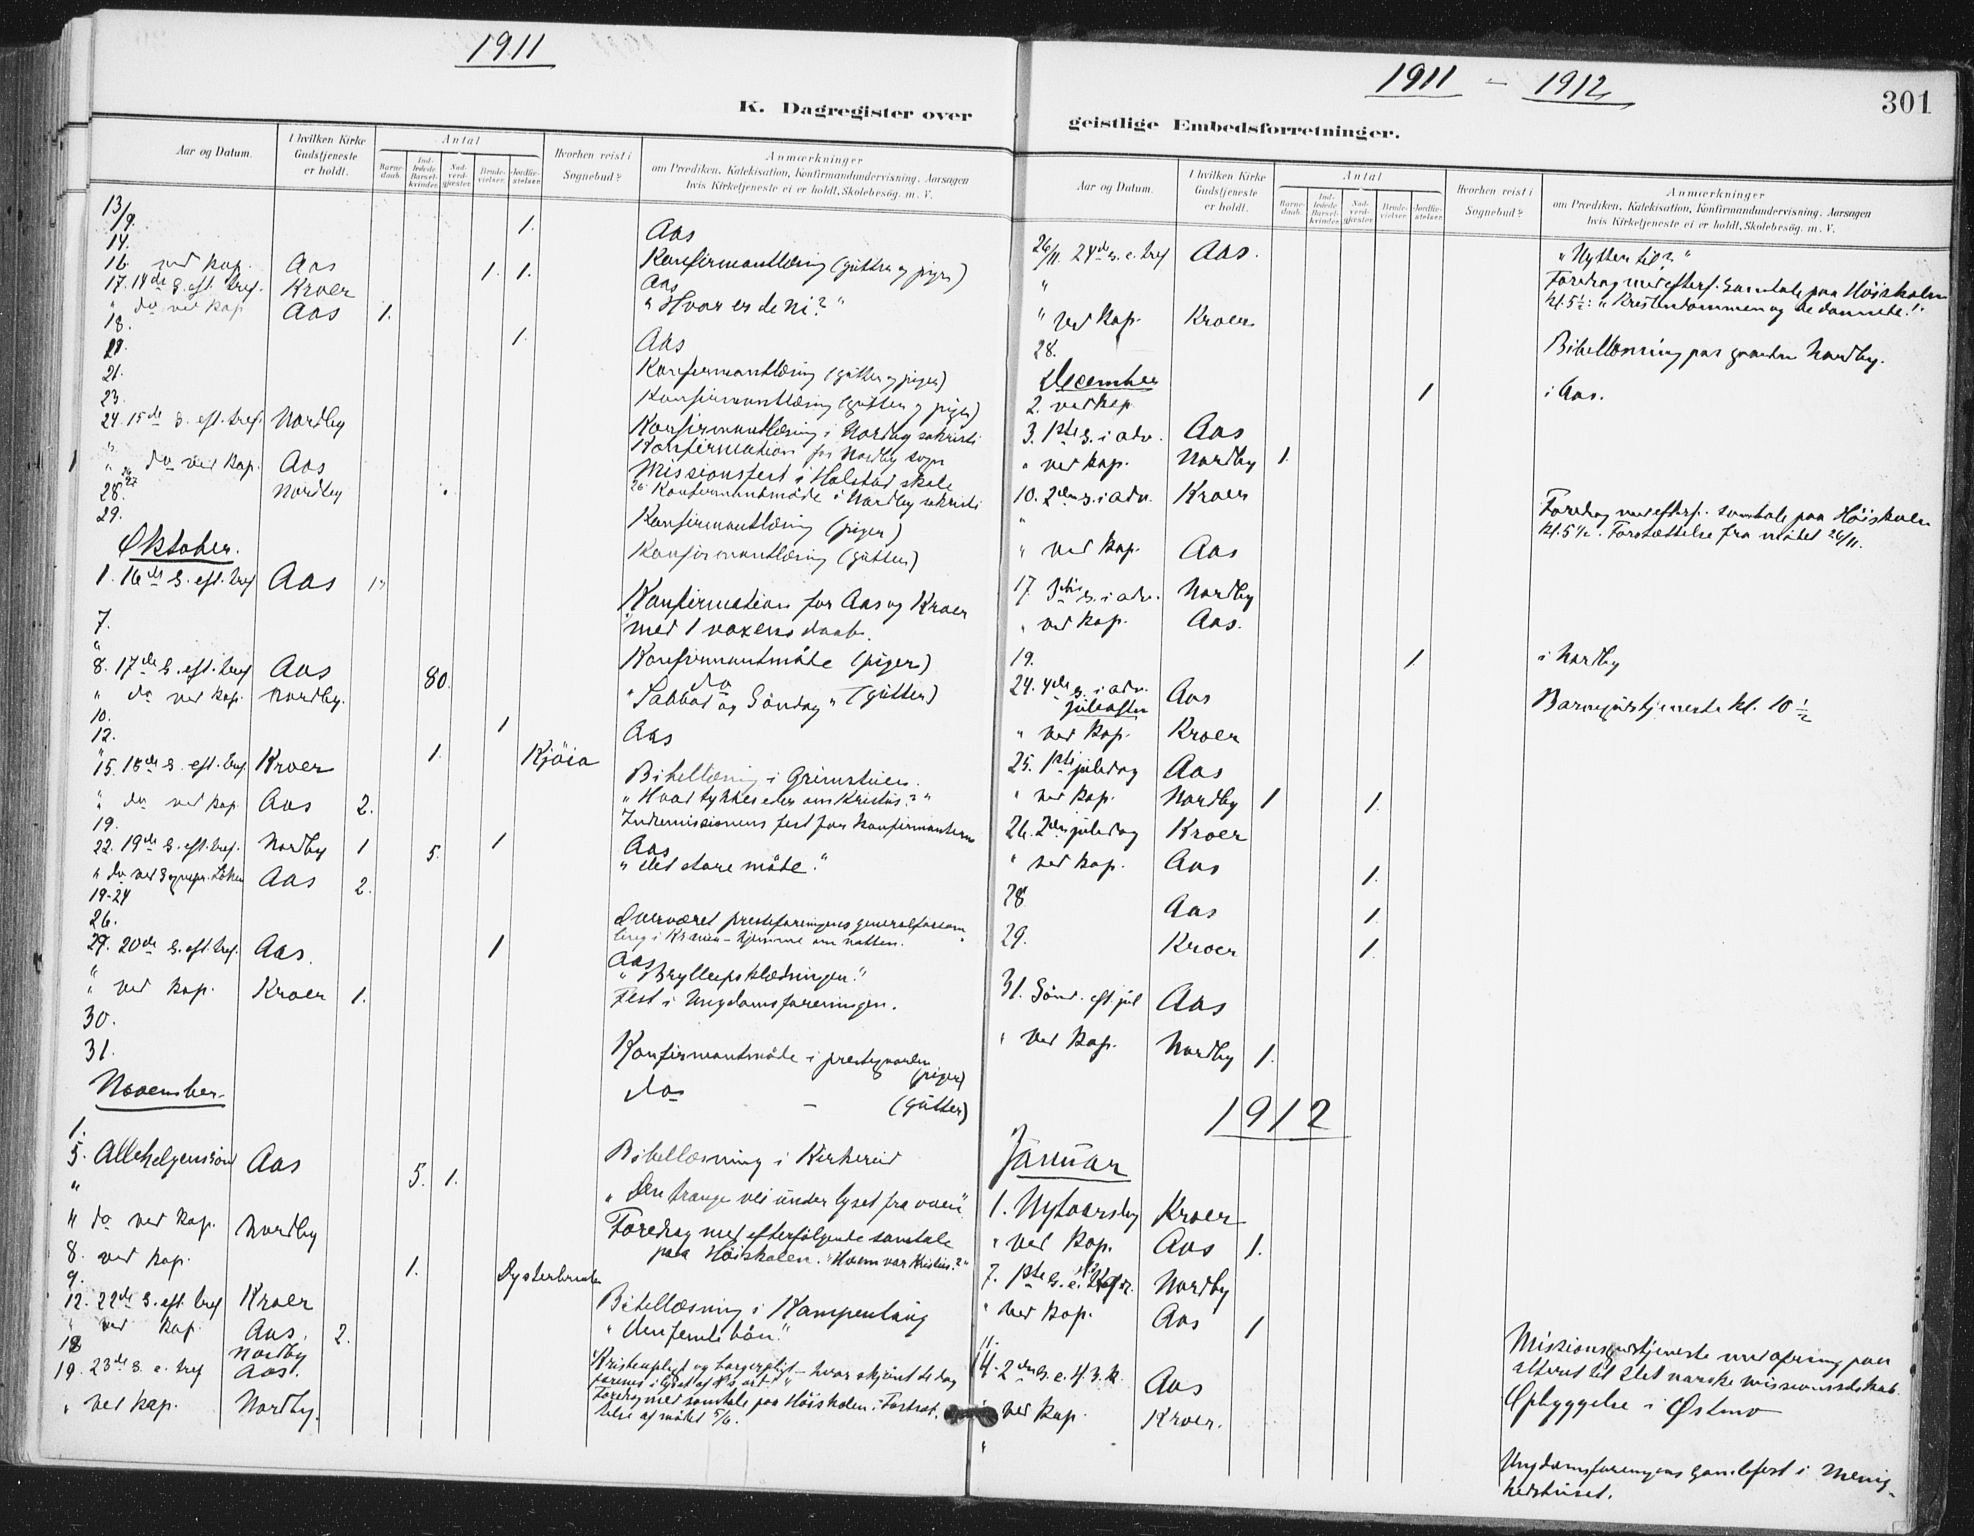 1911
K. Dagregister over
Aar og Datum.
I hvilken Kirke Gudstjeneste er holdt.
Antal
Barnedaab.
Indledede Barselkvinder.
Nadverdgjæster.
Brudevielser.
Jordfæstelser.
Hvorhen reist i Sognebud?
Anmærkninger
om Prædiken, Katekisation, Konfirmandundervisning, Aarsagen
hvis Kirketjeneste ei er holdt, Skolebesøg. m. V.
13/9. 1. Aas
14. Konfirmantlæsning (gutter og piger)
16. ved kap. Aas 1. 1. Aas
17. 14de S. eft. tref. Kroer "Hvor er de ni?"
" do ved kap Aas 1.
18. 1. Aas
Konfirmantlæsning (gutter og piger)
21. Konfirmantlæsning (gutter og piger)
23. Konfirmantlæsning i Nordby sakristi
24. 15de S. eft. tref. Nordby Konfirmation for Nordby sogn
" Missionsfest i Holstad skole
" do ved kap. Aas
Nordby Konfirmantmöde i Nordby sakristi
28. Konfirmantlæsning (piger)
29. Konfirmantlæsning (gutter)
Oktober.
1. 16de S. eft. tref Aas 1. Konfirmation for Aas og Kroer
med 1 voxens daab.
7. Konfirmantmöde (piger)
" do (gutter)
8. 17de S. eft. tref Aas 80. "Sabbad og Söndag"
" do ved kap. Nordby.
10. 1 Aas
12. Bibellæsning i Grimstuen.
" 1. Kjöia
15. 18de S. eft. tref. Kroer "Hvad tykkes eder om Kristus?"
" do ved kap. Aas 2.
19. Indremissionens fest for konfirmanterne
22. 19de S. eft. tref. Nordby 1 5. 1 Aas
"det store möde."
" do ved Aas 2.
19-24
26. Overværet presteforeningens generalforsam.
i Krania - hjemme om natten.
29. 20de S. eft. tref. Aas. 1 Aas
"Bryllupsklædningen."
" ved kap. Kroer 1. Fest i Ungdomsforeningen.
30. Konfirmantmöde i prestegaarden (piger)
31. do - (gutter)
November.
1. Bibellæsning i Kirkereid
5. Allehelgensönd Aas 5. 1. "Den trange vei under lyset fra oven"
" Foredrag med efterfölgende samtale
paa Höiskolen. "Hvem var Kristus?"
" do ved kap. Nordby
8. ved kap. 1. Dysterbruket
9. Bibellæsning i
12. 22de S. eft. tref Kroer
" ved kap. Aas. 2.
18 Nordby
19. 23de S. e. tref Aas. Kristenpligt og borgerpligt - hvor skjönt de dog
forenes i lyset af
Foredrag med samtale paa Höiskolen. Fortsæt-
telse af mötet
" ved kap. Nordby.
1911 - 1912
301
geistlige Embedsforretninger.
Aar og Datum.
I hvilken Kirke Gudstjeneste er holdt.
Antal
Barnedaab.
Indledede Barselkvinder.
Nadverdgjæster.
Brudevielser.
Jordfæstelser.
Hvorhen reist i Sognebud?
Anmærkninger
om Prædiken, Katekisation, Konfirmandundervisning, Aarsagen
hvis Kirketjeneste ei er holdt, Skolebesøg. m. V.
26/11. 24de S. e. tref Aas. "Nytter til?"
" Foredrag med efterf. samtale paa Höiskolen
kl. 5½: "Kristendommen og de dannede."
" ved kap. Kroer
28. Bibellæsning paa Nordby.
December
2. ved kap 1 i Aas.
3. 1ste S. i adv. Aas
" ved kap. Nordby 1.
10. 2den S. i adv. Kroer
" Foredrag med efterf. samtale paa Höiskolen
kl. 5½. Forstættelse fra mötet 26/11.
" ved kap. Aas
17. 3die S. i adv. Nordby
" ved kap. Aas.
19. 1 i Nordby
24. 4de S. i adv. Aas Barnegudstjeneste kl. 10½
juleaften
" ved kap. Kroer
25. 1ste juledag Aas
" ved kap. Nordby 1 1.
26. 2den juledag Kroer
" ved kap. Aas 1.
28 Aas 1.
29. Kroer 1.
31. Sönd. eft. jul Aas
" ved kap. Nordby 1.
1912
Januar
1. Nytaarsdag Kroer
" ved kap. Aas 1.
7. 1ste S. e. Nordby
" ved kap. Aas 1
11. Missionsgudstjeneste med ofring paa
alteret til Det norske missionsselskab.
14. 2den S. e. H. 3. k. Aas Opbyggelse i Østmo
" ved kap. Kroer.
" Ungdomsforeningens gamlefest i Menig-
hedshuset.